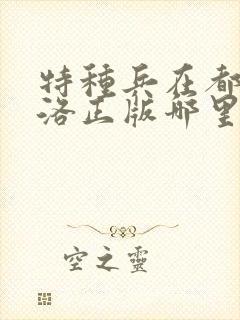 特種兵在都
洛正版哪里
空之靈